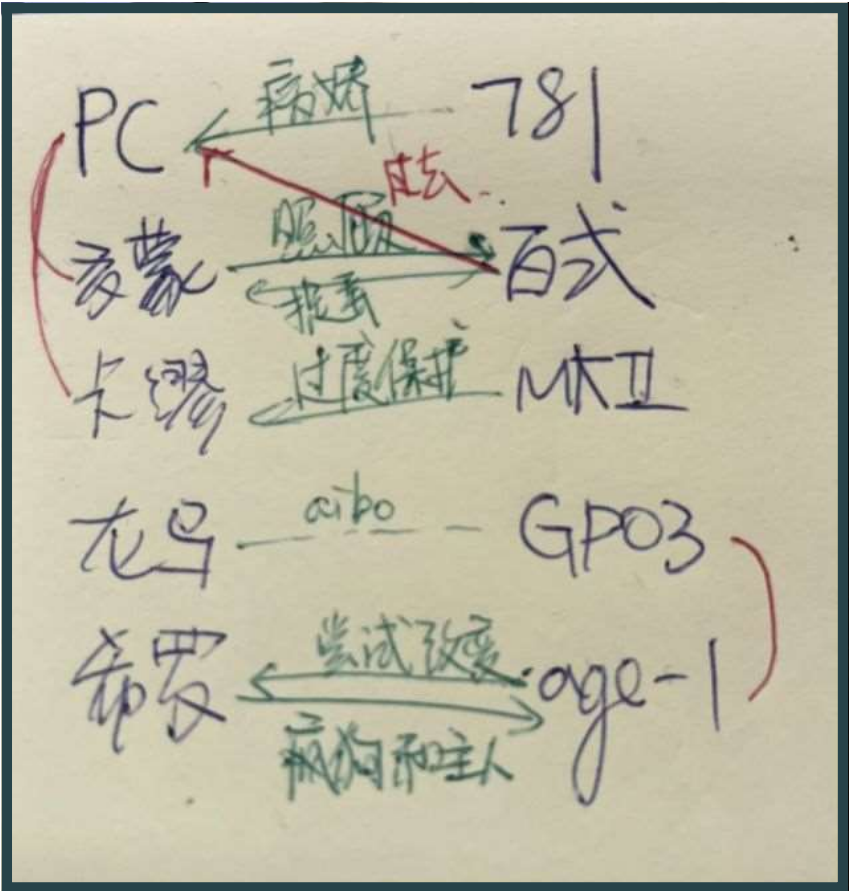 PC 病娇 781
过去
麦蒙 照顾 百式
卡缪 过度保护 MKII
龙马 aibo GP03
希罗 尝试改变 age-1
疯狗和主人